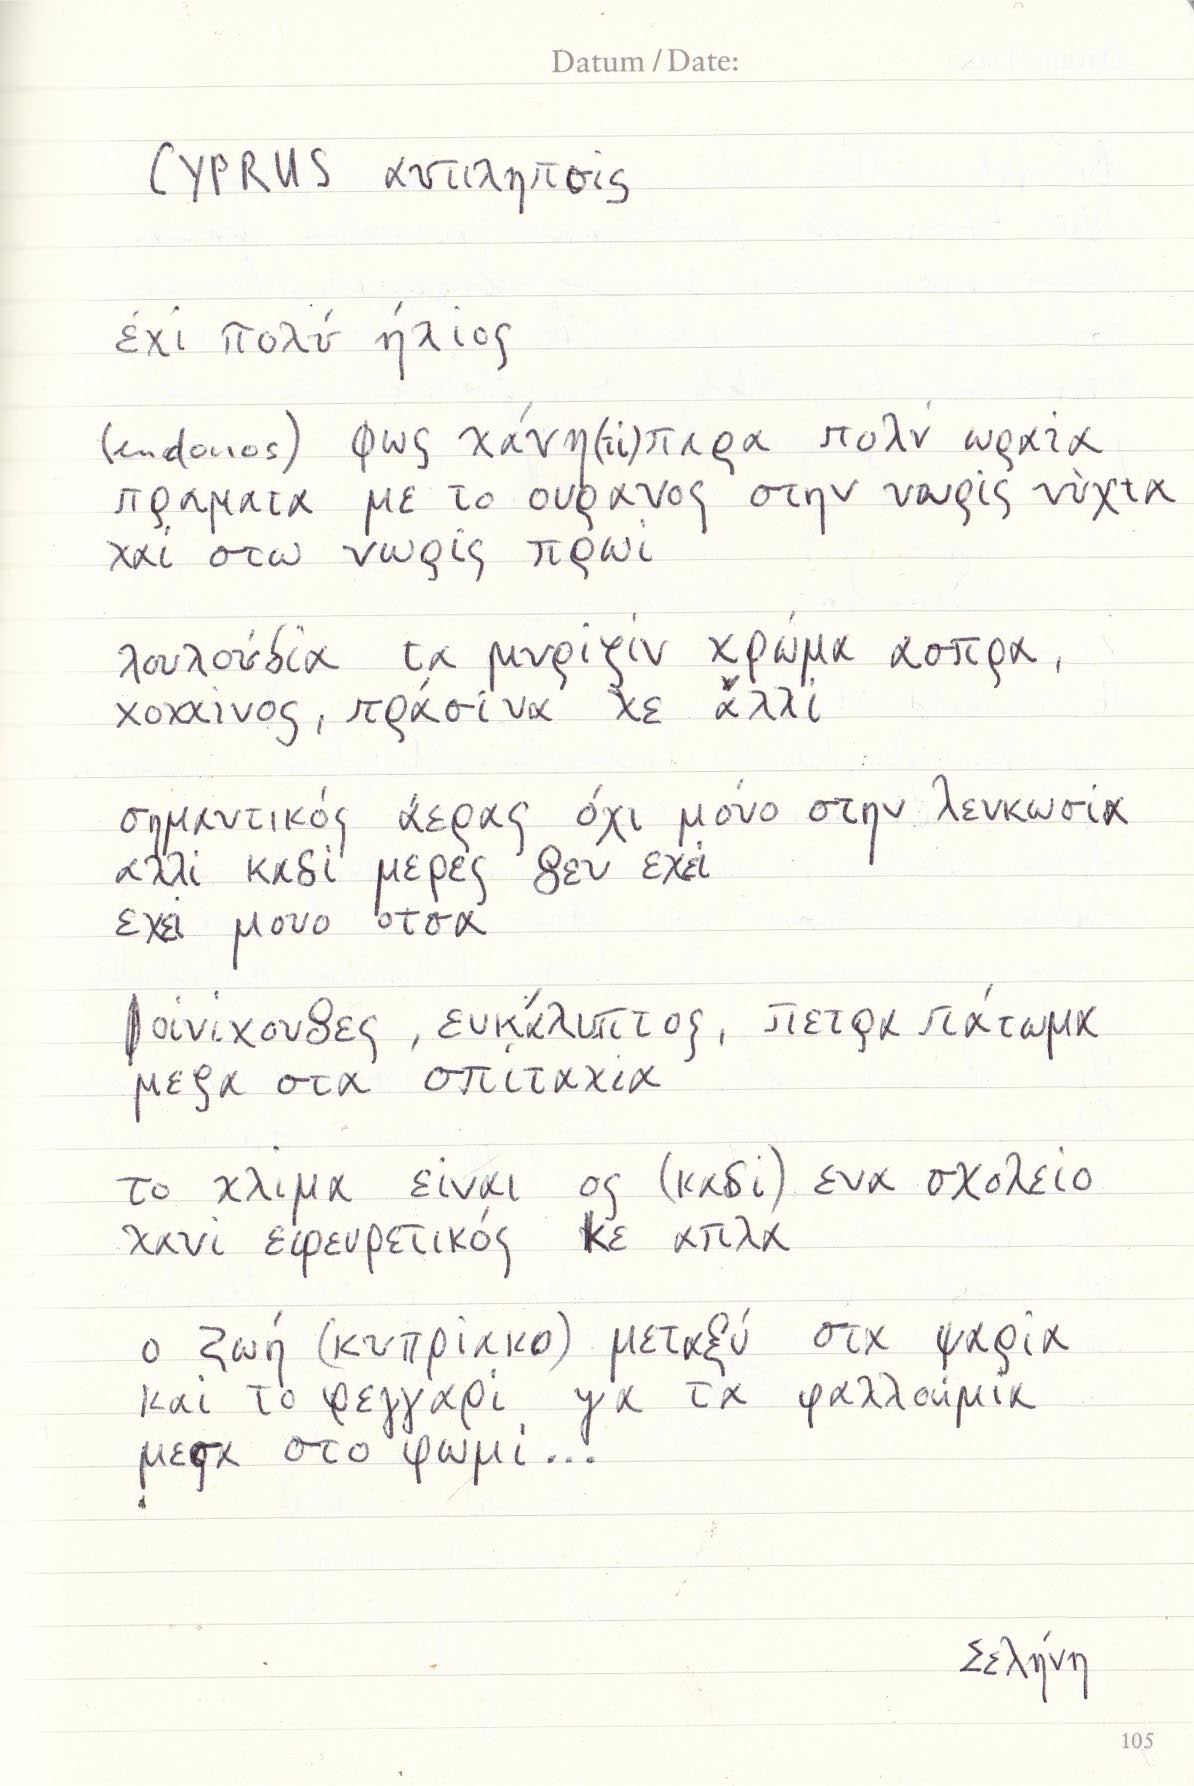 Datum / Date:
CYPRUS αντιληπσις
έχι πολύ ήλιος
φως κάνη (τι) παρα πολύ ωραία
πραματα με το ουρανος στην νωρίς νύχτα
και στω νωρίς πρωί
λουλούδια τα μυρίζιν χρώμα ασπρα,
κοκκινος, πράσινα κε άλλι
σημαντικός άερας όχι μόνο στην λευκωσία
αλλι καδι μερες δεν εχει
εχει μονο οτσα
φοινικουδες, ευκάλυπτος, πετρα πάτωμα
μεσα στα σπιτακια
το κλιμα είναι ος (καδι) ενα σχολείο
κανι εφευρετικός κε απλά
ο ζωή (κυπριακο) μεταξύ στα ψαρια
και το φεγγαρι για τα φαλλούμια
μεσα στο ψωμι...
Σελήνη
105